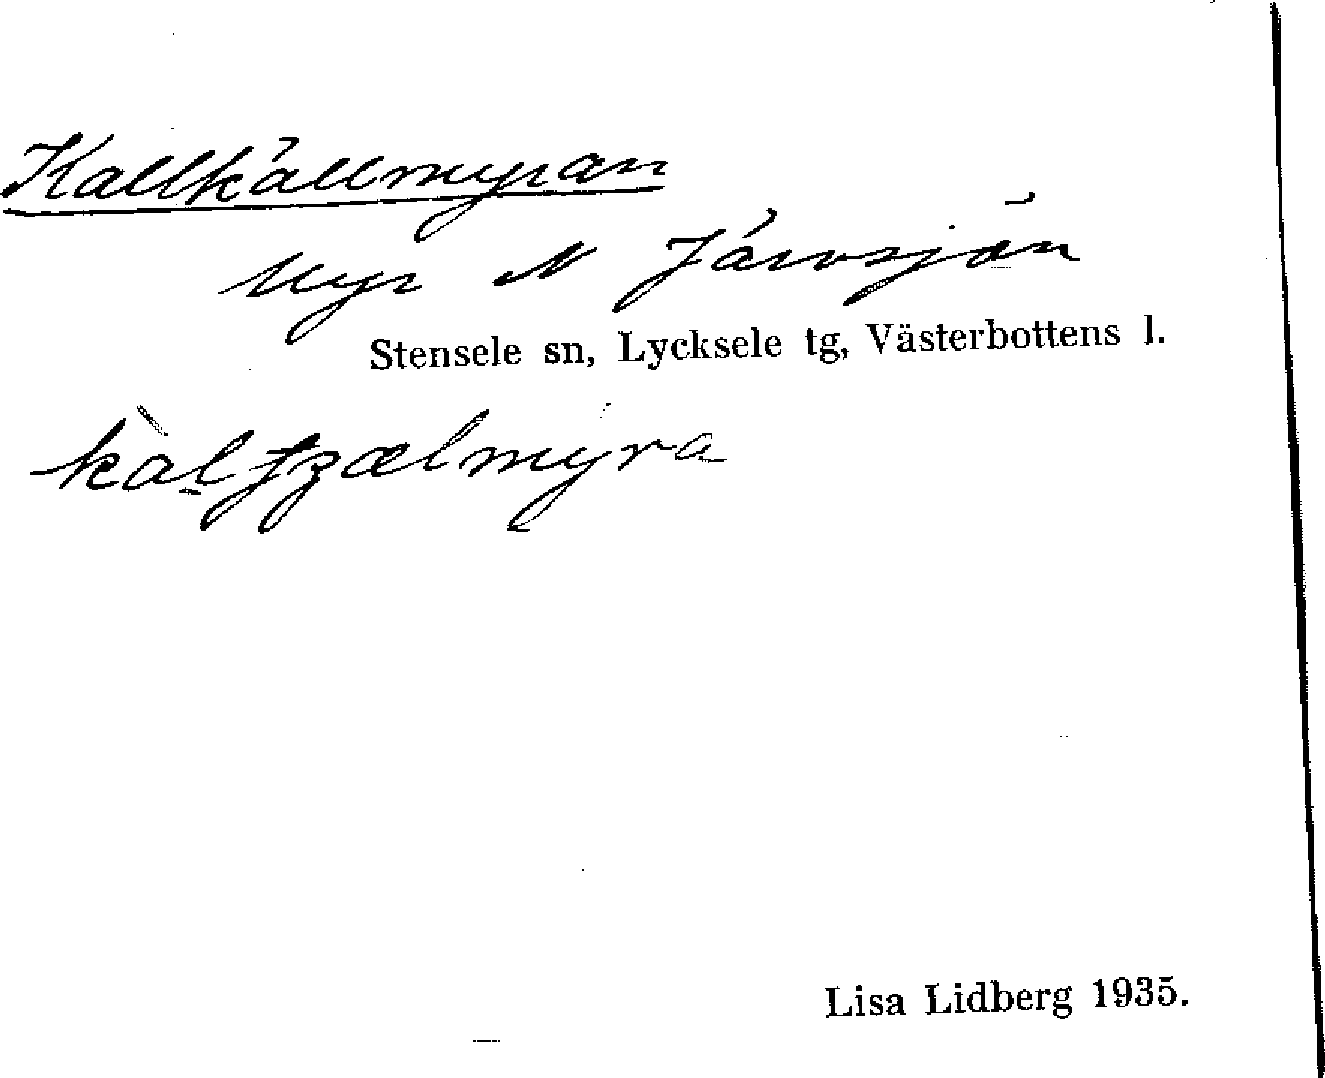 Kallkällmyran
Myr N Järvsjön
Stensele sn, Lycksele tg, Västerbottens l.
kàlʃʒælmyra
Lisa Lidberg 1935.